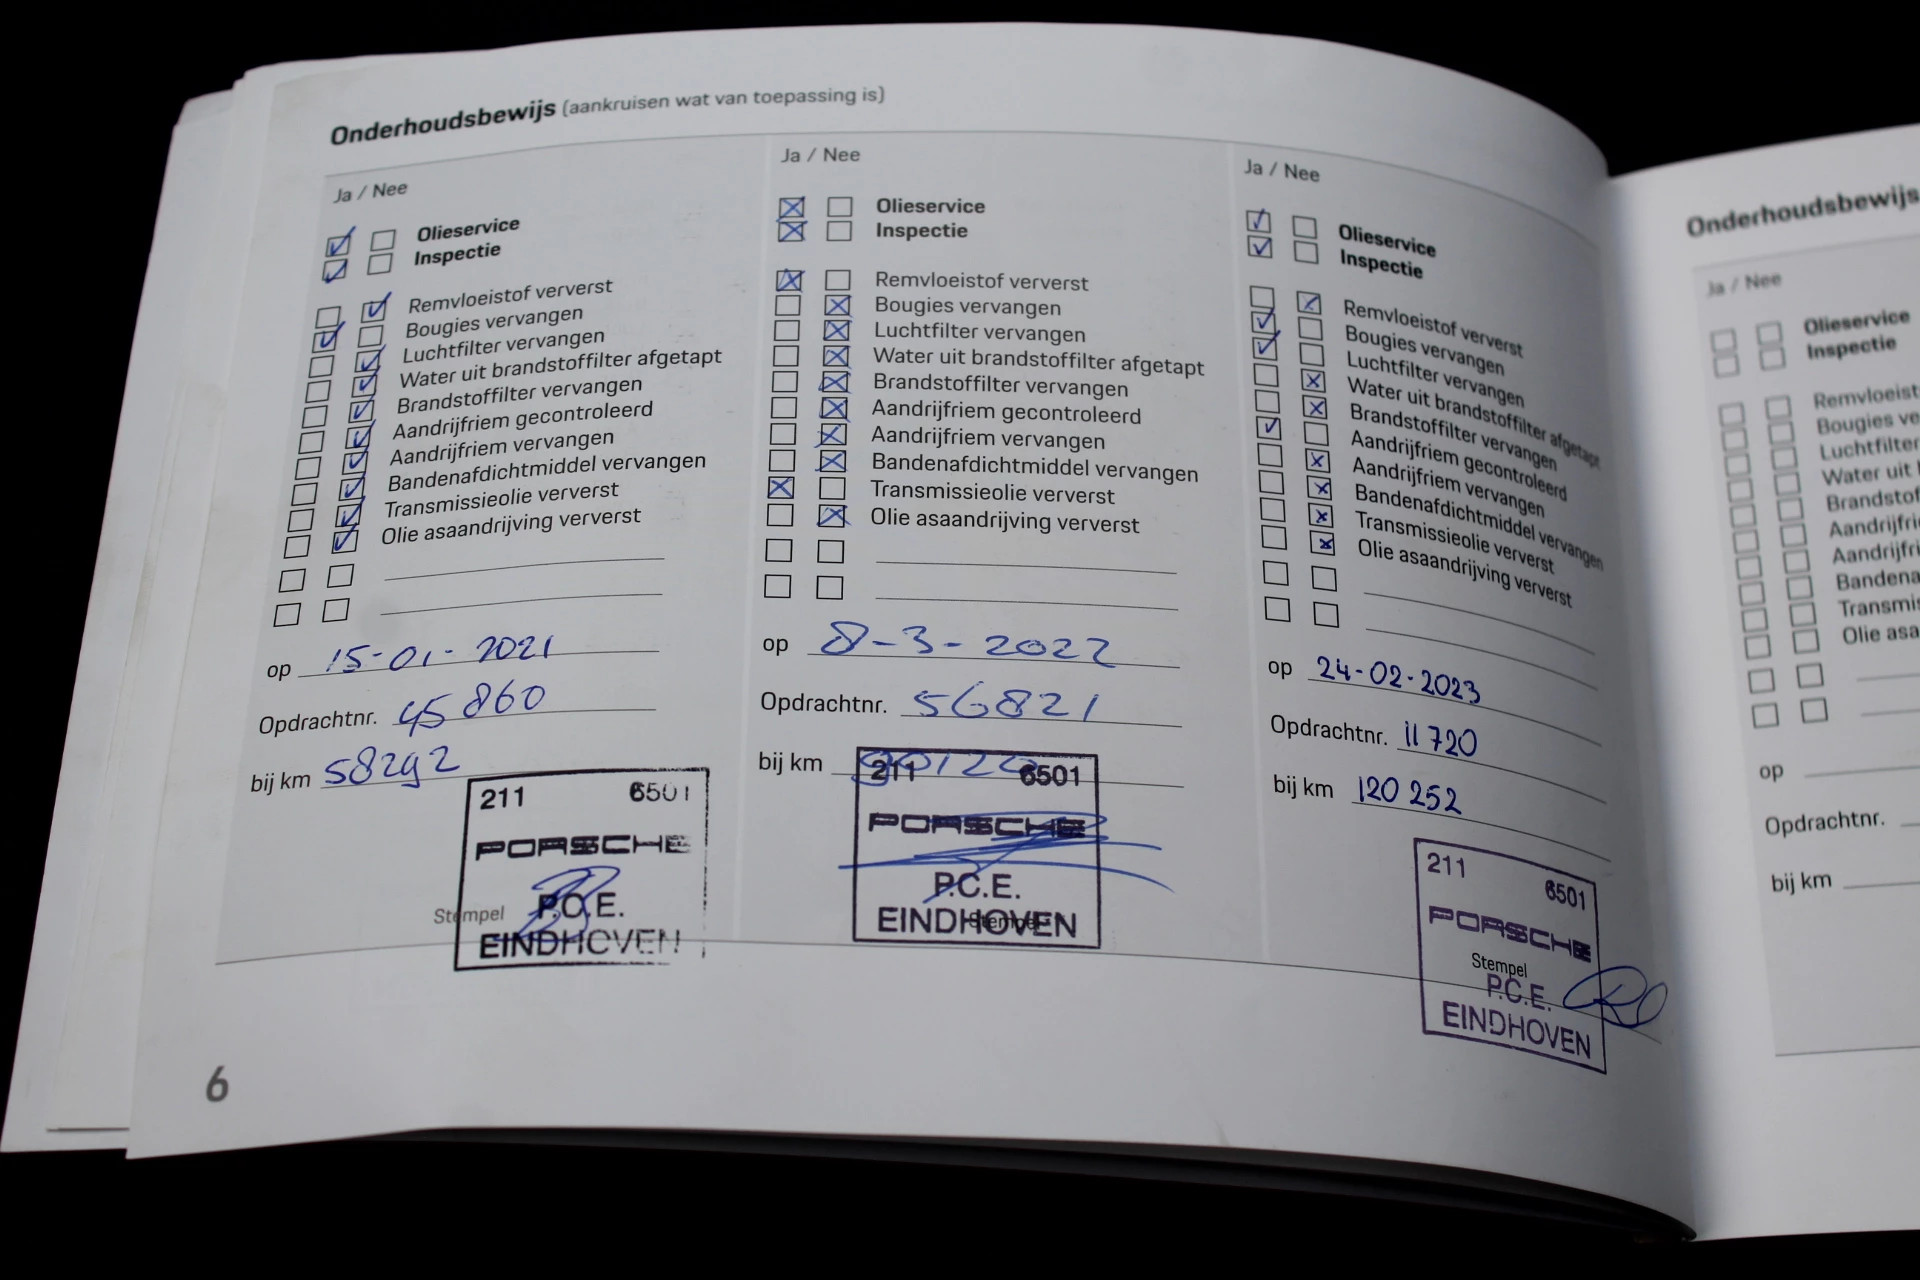 Onderhoudsbewijs (aankruisen wat van toepassing is)
Ja / Nee
Olieservice
Inspectie
Remvloeistof ververst
Bougies vervangen
Luchtfilter vervangen
Water uit brandstoffilter afgetapt
Brandstoffilter vervangen
Aandrijfriem gecontroleerd
Aandrijfriem vervangen
Bandenafdichtmiddel vervangen
Transmissieolie ververst
Olie asaandrijving ververst
op 15-01-2021
Opdrachtnr. 45860
bij km 58292
211 6501
PORSCHE
P.C.E.
Stempel
EINDHOVEN
Ja / Nee
Olieservice
Inspectie
Remvloeistof ververst
Bougies vervangen
Luchtfilter vervangen
Water uit brandstoffilter afgetapt
Brandstoffilter vervangen
Aandrijfriem gecontroleerd
Aandrijfriem vervangen
Bandenafdichtmiddel vervangen
Transmissieolie ververst
Olie asaandrijving ververst
op 8-3-2022
Opdrachtnr. 56821
bij km
211 6501
PORSCHE
P.C.E.
EINDHOVEN
Stempel
Ja / Nee
Olieservice
Inspectie
Remvloeistof ververst
Bougies vervangen
Luchtfilter vervangen
Water uit brandstoffilter afgetapt
Brandstoffilter vervangen
Aandrijfriem gecontroleerd
Aandrijfriem vervangen
Bandenafdichtmiddel vervangen
Transmissieolie ververst
Olie asaandrijving ververst
op 24-02-2023
Opdrachtnr. 11720
bij km 120 252
211 6501
PORSCHE
Stempel
P.C.E.
EINDHOVEN
6
Onderhoudsbewijs
Ja / Nee
Olieservice
Inspectie
Remvloeist
Bougies ve
Luchtfilter
Water uit
Brandstof
Aandrijfri
Aandrijfri
Bandena
Transmis
Olie asa
op
Opdrachtnr.
bij km